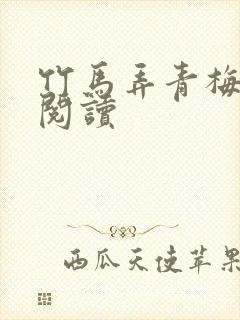 竹馬弄青梅
閱讀
西瓜天使苹果